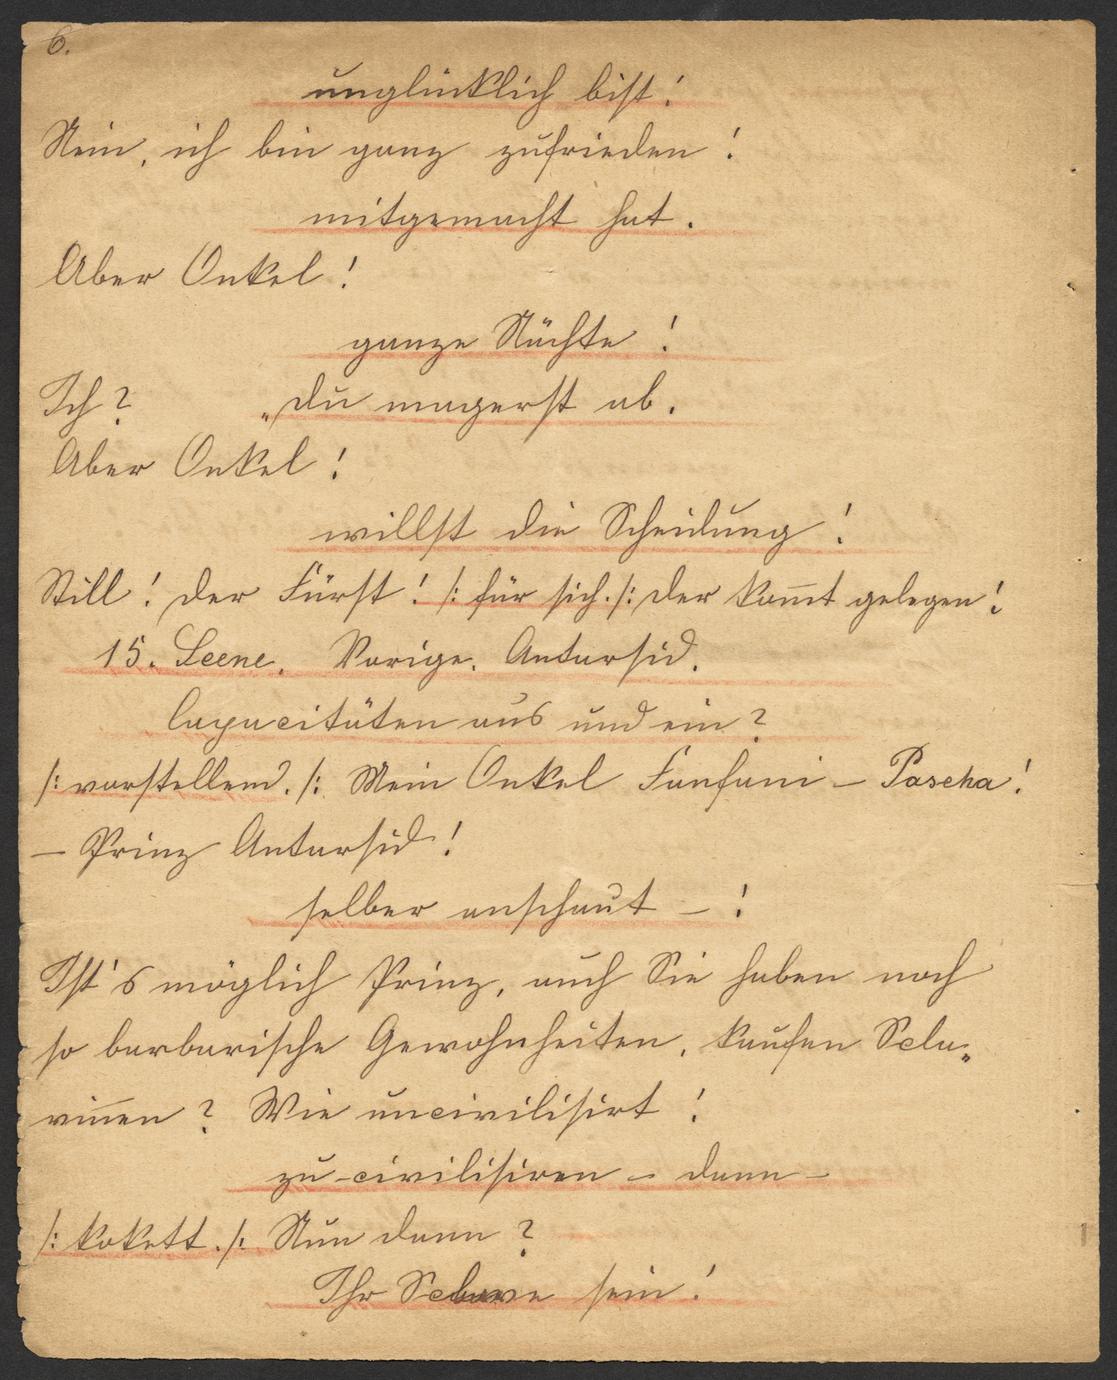 6.
unglücklich bist!
Nein, ich bin ganz zufrieden!
mitgemacht hat.
Aber Onkel!
ganze Nächte!
Ich? „Du magerst ab.
Aber Onkel!
willst die Scheidung!
Still! der Fürst! /: für sich. /: der kom̅t gelegen!
15. Scene. Vorige. Antarsid.
Capacitäten aus und ein?
/: vorstellend. /: Mein Onkel Fanfani – Pascha!
– Prinz Antarsid!
selber anschaut – !
Ist's möglich Prinz, auch Sie haben noch
so barbarische Gewohnheiten, kaufen Scla„
vin̅en? Wie uncivilisirt!
zu civilisiren – dann –
/: kokett. /: Nun dann?
Ihr Sclave sein!